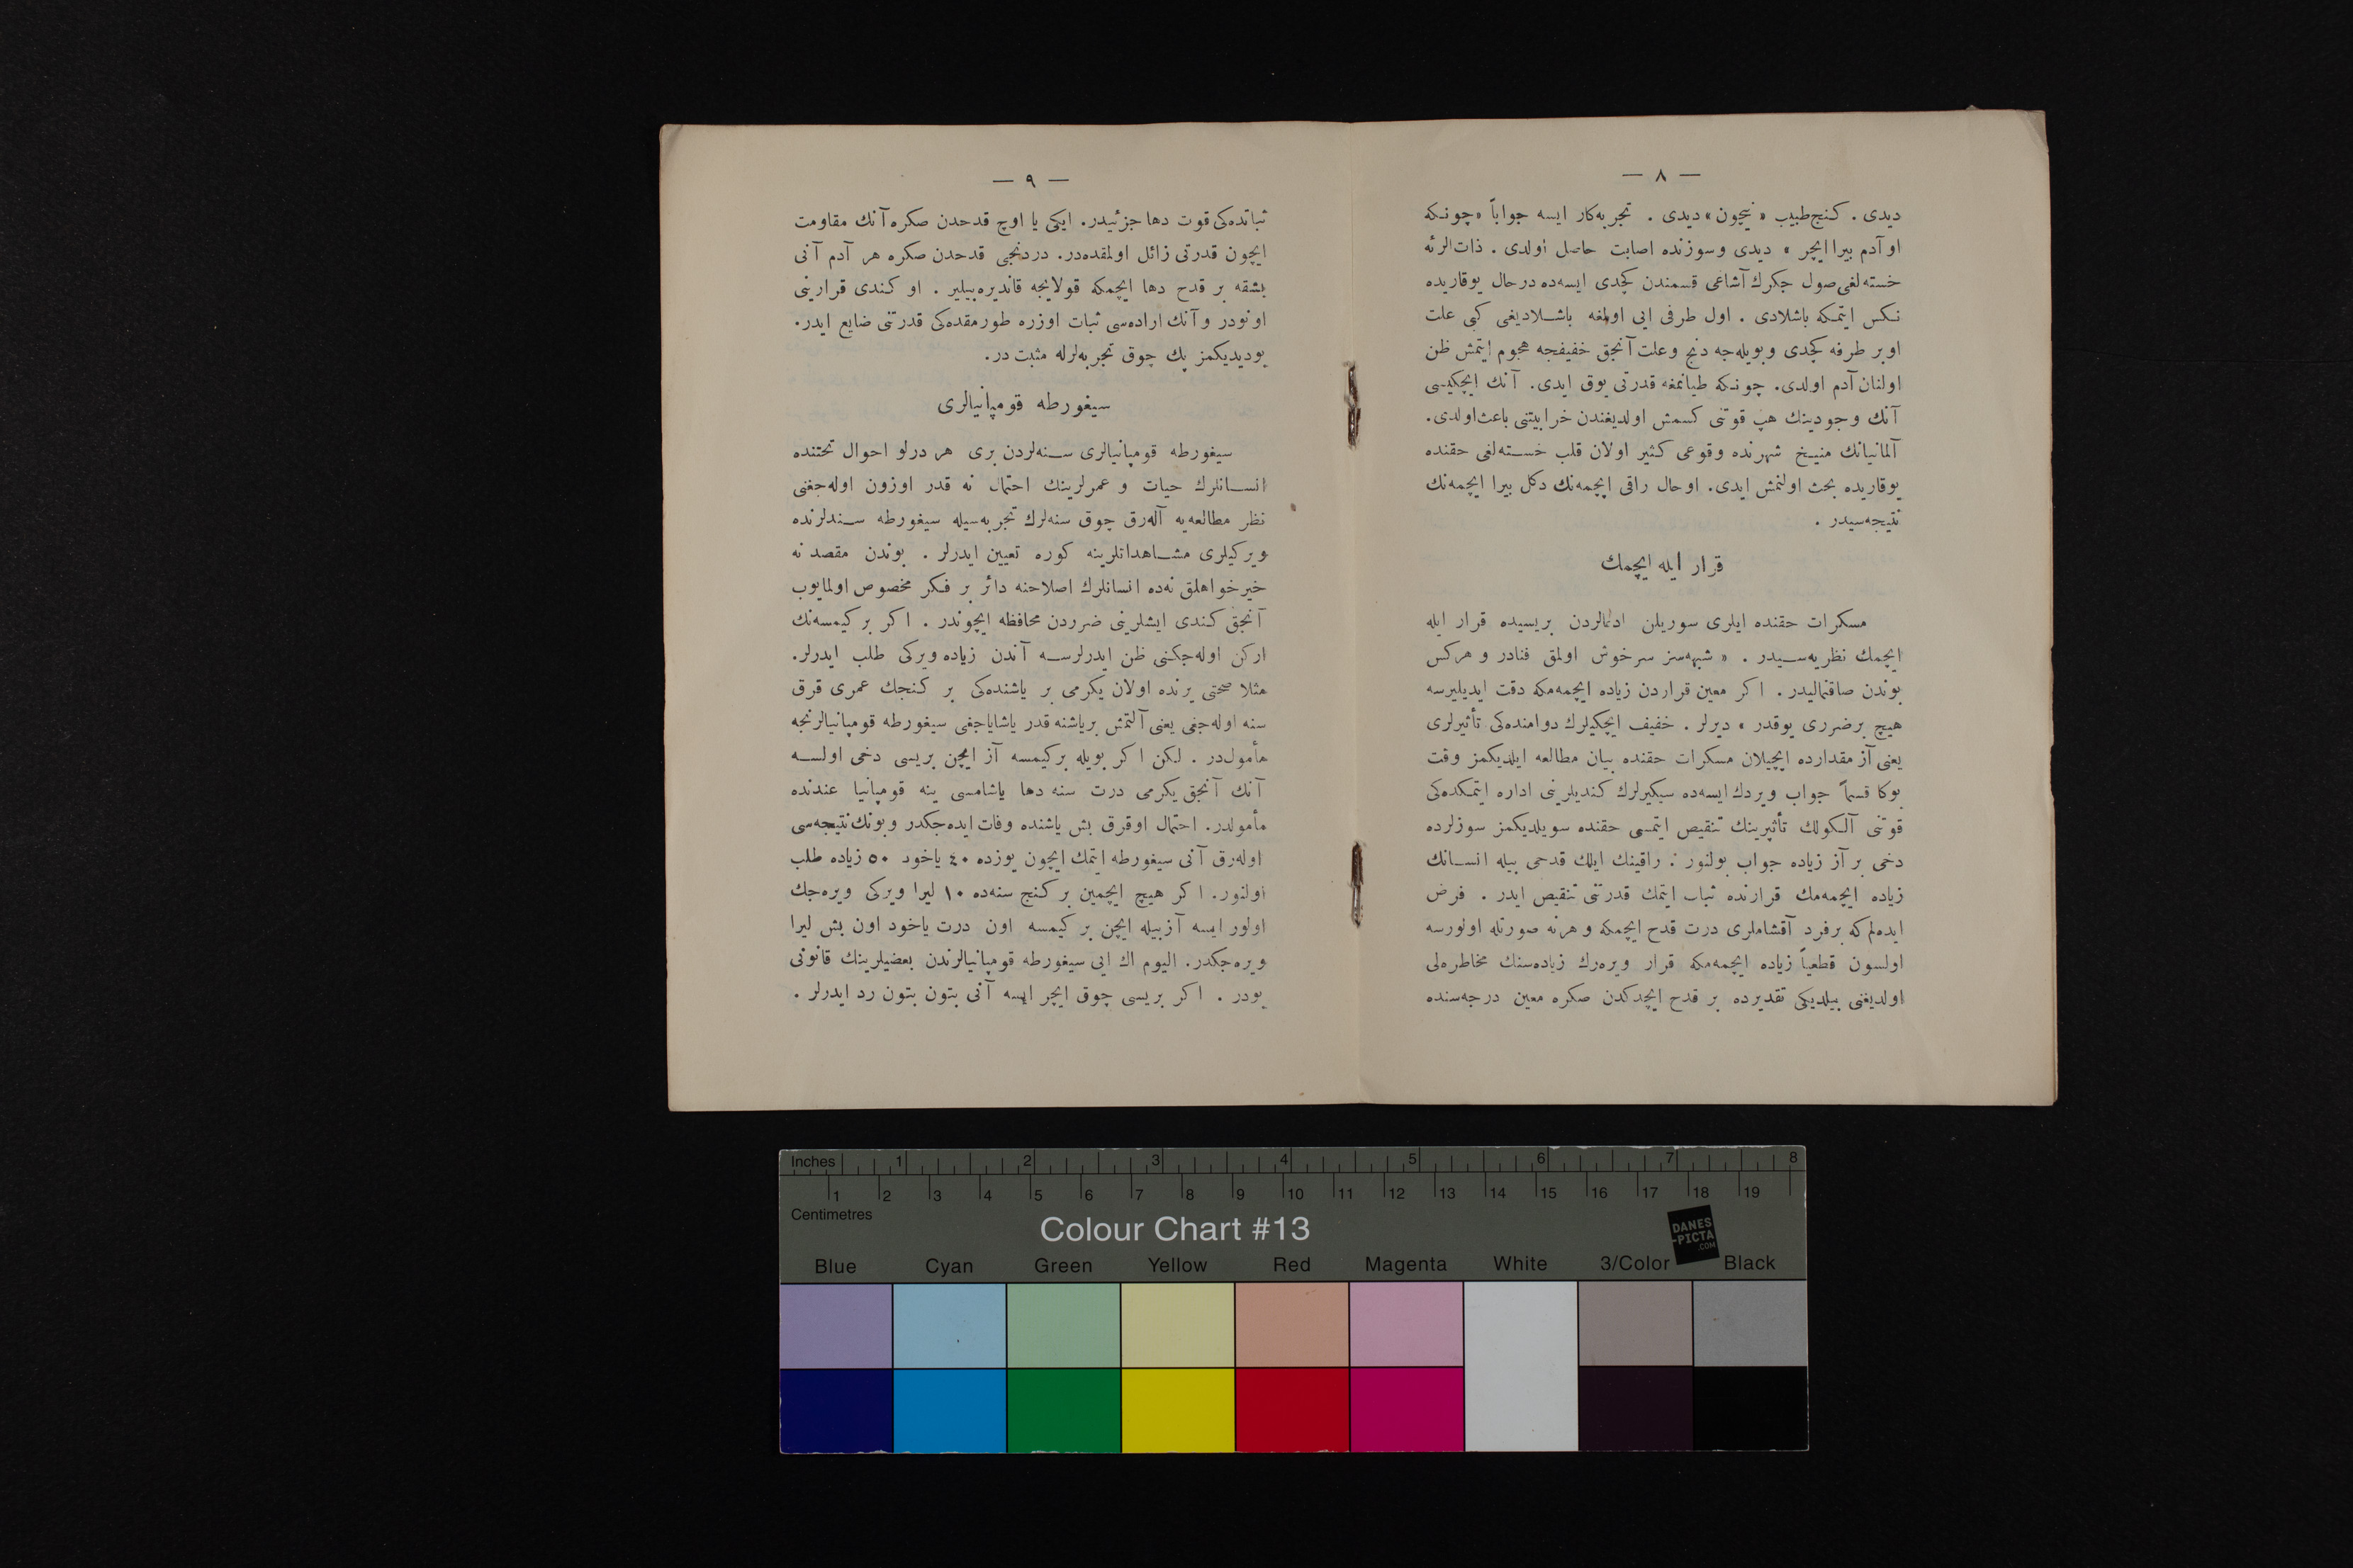 — ٨ —
ديدى . كنج طبيب « نيچون » ديدى . تجربه‌كار ايسه جواباً « چونكه
او آدم بيرا ايچر » ديدى وسوزنده اصابت حاصل اولدى . ذات‌الرئه
خسته‌لغى صول جكرك آشاغى قسمندن كچدى ايسه‌ده درحال يوقاريده
نكس ايتمكه باشلادى . اول طرفى ايى اولمغه باشلاديغى كبى علت
اوبر طرفه كچدى وبويله‌جه دنج وعلت آنجق خفيفجه هجوم ايتمش ظن
اولنان آدم اولدى. چونكه طيانمغه قدرتى يوق ايدى. آنك ايچكيسى
آنك وجودينك هپ قوتنى كسمش اولديغندن خرابيتنى باعث اولدى.
آلمانيانك منيخ شهرنده وقوعى كثير اولان قلب خسته‌لغى حقنده
يوقاريده بحث اولنمش ايدى. اوحال راقى ايچمه‌نك دكل بيرا ايچمه‌نك
نتيجه‌سيدر .
قرار ايله ايچمك
مسكرات حقنده ايلرى سوريلن ادعالردن بريسيده قرار ايله
ايچمك نظريه‌سيدر . « شبهه‌سز سرخوش اولمق فنادر و هركس
بوندن صاقنماليدر . اكر معين قراردن زياده ايچمه‌مكه دقت ايديليرسه
هيچ برضررى يوقدر » ديرلر . خفيف ايچكيلرك دوامنده‌كى تأثيرلرى
يعنى آز مقدارده ايچيلان مسكرات حقنده بيان مطالعه ايلديكمز وقت
بوكا قسماً جواب ويردك ايسه‌ده سيكيرلرك كنديلرينى اداره ايتمكده‌كى
قوتنى آلكولك تأثيرينك تنقيص ايتمسى حقنده سويلديكمز سوزلرده
دخى بر آز زياده جواب بولنور : راقينك ايلك قدحى بيله انسانك
زياده ايچمه‌مك قرارنده ثبات ايتمك قدرتنى تنقيص ايدر . فرض
ايده‌لم كه برفرد آقشاملرى درت قدح ايچمكه و هر نه صورتله اولورسه
اولسون قطعياً زياده ايچمه‌مكه قرار ويره‌رك زياده‌سنك مخاطره‌لى
اولديغنى بيلديكى تقديرده بر قدح ايچدكدن صكره معين درجه‌سنده
— ٩ —
ثباتده‌كى قوت دها جزئيدر. ايكى يا اوچ قدحدن صكره آنك مقاومت
ايچون قدرتى زائل اولمقده‌در. دردنجى قدحدن صكره هر آدم آنى
بشقه بر قدح دها ايچمكه قولايجه قانديره‌بيلير . او كندى قرارينى
اونودر و آنك اراده‌سى ثبات اوزره طورمقده‌كى قدرتنى ضايع ايدر.
بوديديكمز پك چوق تجربه‌لرله مثبت در.
سيغورطه قومپانيالرى
سيغورطه قومپانيالرى سنه‌لردن برى هر درلو احوال تحتنده
انسانلرك حيات و عمرلرينك احتمال نه قدر اوزون اوله‌جغنى
نظر مطالعه‌يه آله‌رق چوق سنه‌لرك تجربه‌سيله سيغورطه سندلرنده
ويركيلرى مشاهداتلرينه كوره تعيين ايدرلر . بوندن مقصد نه
خيرخواهلق نه‌ده انسانلرك اصلاحنه دائر بر فكر مخصوص اولمايوب
آنجق كندى ايشلرينى ضرردن محافظه ايچوندر . اكر بر كيمسه‌نك
اركن اوله‌جكنى ظن ايدرلرسه آندن زياده ويركى طلب ايدرلر.
مثلا صحتى يرنده اولان يكرمى بر ياشنده‌كى بر كنجك عمرى قرق
سنه اوله‌جغى يعنى آلتمش برياشنه قدر ياشاياجغى سيغورطه قومپانيالرنجه
مأمول‌در . لكن اكر بويله بركيمسه آز ايچن بريسى دخى اولسه
آنك آنجق يكرمى درت سنه دها ياشامسى ينه قومپانيا عندنده
مأمولدر. احتمال اوقرق بش ياشنده وفات ايده‌جكدر وبونك نتيجه‌سى
اوله‌رق آنى سيغورطه ايتمك ايچون يوزده ٤٠ ياخود ٥٠ زياده طلب
اولنور. اكر هيچ ايچمين بر كنج سنه‌ده ١٠ ليرا ويركى ويره‌جك
اولور ايسه آزبيله ايچن بر كيمسه اون درت ياخود اون بش ليرا
ويره‌جكدر. اليوم اك ايى سيغورطه قومپانيالرندن بعضيلرينك قانونى
بودر . اكر بريسى چوق ايچر ايسه آنى بتون بتون رد ايدرلر .
Inches 1 2 3 4 5 6 7 8
1 2 3 4 5 6 7 8 9 10 11 12 13 14 15 16 17 18 19
Centimetres
Colour Chart #13
DANES
-PICTA
.COM
Blue Cyan Green Yellow Red Magenta White 3/Color Black